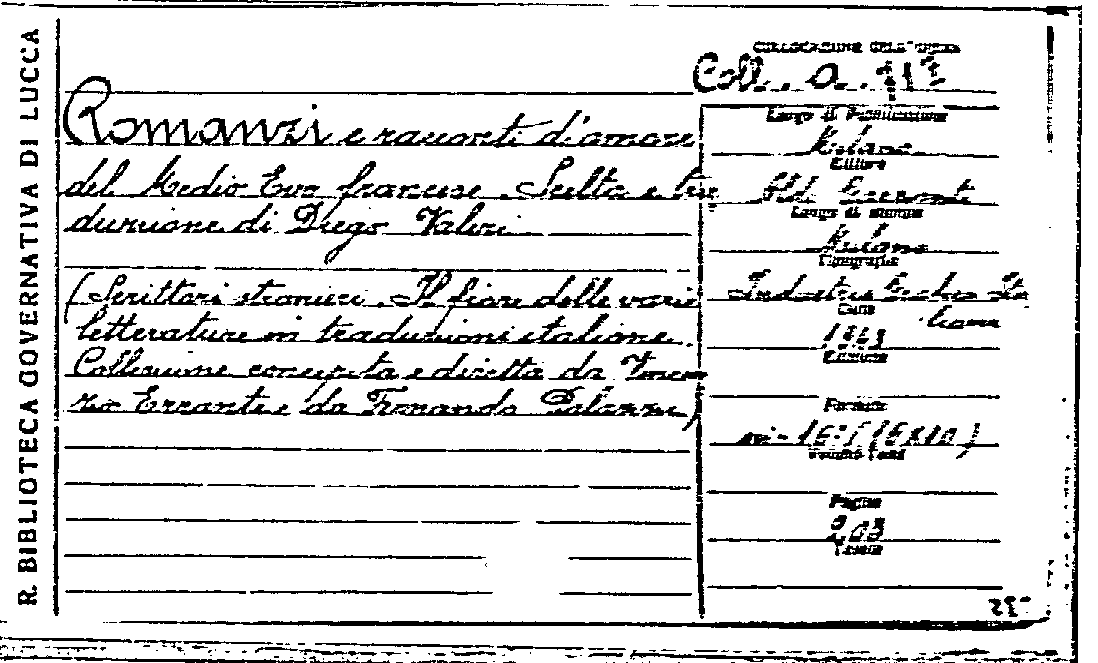 R. BIBLIOTECA GOVERNATIVA DI LUCCA
COLLOCAZIONE DELL'OPERA
Coll. a.
Romanzi e racconti d'amore
del Medio Evo francese. Scelta e tra
duzione di Diego Valeri
(Scrittori stranieri. Il fiore delle varie
letterature in traduzioni italiane.
Collezione concepita e diretta da Vincen
zo Errante e da Fernando Palazzi)
Luogo di Pubblicazione
Milano
Editore
Ald. Garzanti
Luogo di stampa
Milano
Tipografia
Industrie Grafiche Ita
liane
Data
1943
Edizione
Formato
in-16° (16x10)
Pagine
203
Tavole